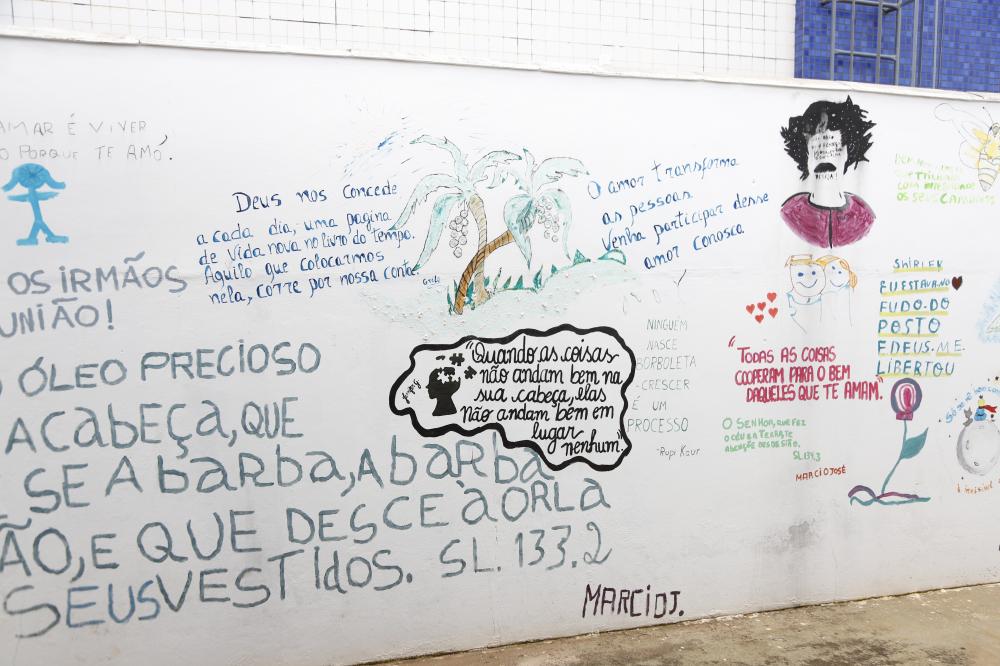 AMAR É VIVER
O PORQUE TE AMO.
OS IRMÃOS
UNIÃO!
ÓLEO PRECIOSO
A CABEÇA, QUE
SE A BARBA, A BARBA
ÃO, E QUE DESCE À ORLA
SEUS VESTIDOS. SL. 133.2
DEUS NOS CONCEDE
a cada dia, uma página
de vida nova no livro do tempo.
Aquilo que colocarmos
nela, corre por nossa conta.
O amor transforma
as pessoas
Venha participar desse
amor conosco
"Quando as coisas
não andam bem na
sua cabeça, elas
Não andam bem em
lugar
nenhum."
NINGUÉM
NASCE
BORBOLETA
-CRESCER
É UM
PROCESSO
-Rupi Kaur
"TODAS AS COISAS
COOPERAM PARA O BEM
DAQUELES QUE TE AMAM."
O SENHOR, QUE FEZ
O CÉU E A TERRA, TE
ABENÇOE DESDE SIÃO.
SL 134,3
MARCIO JOSÉ
OS SEUS CAMINHOS
SHIRLEY
EU ESTAVA NO
FUDO-DO
POSTO
E DEUS. ME.
LIBERTOU
MARCIO J.